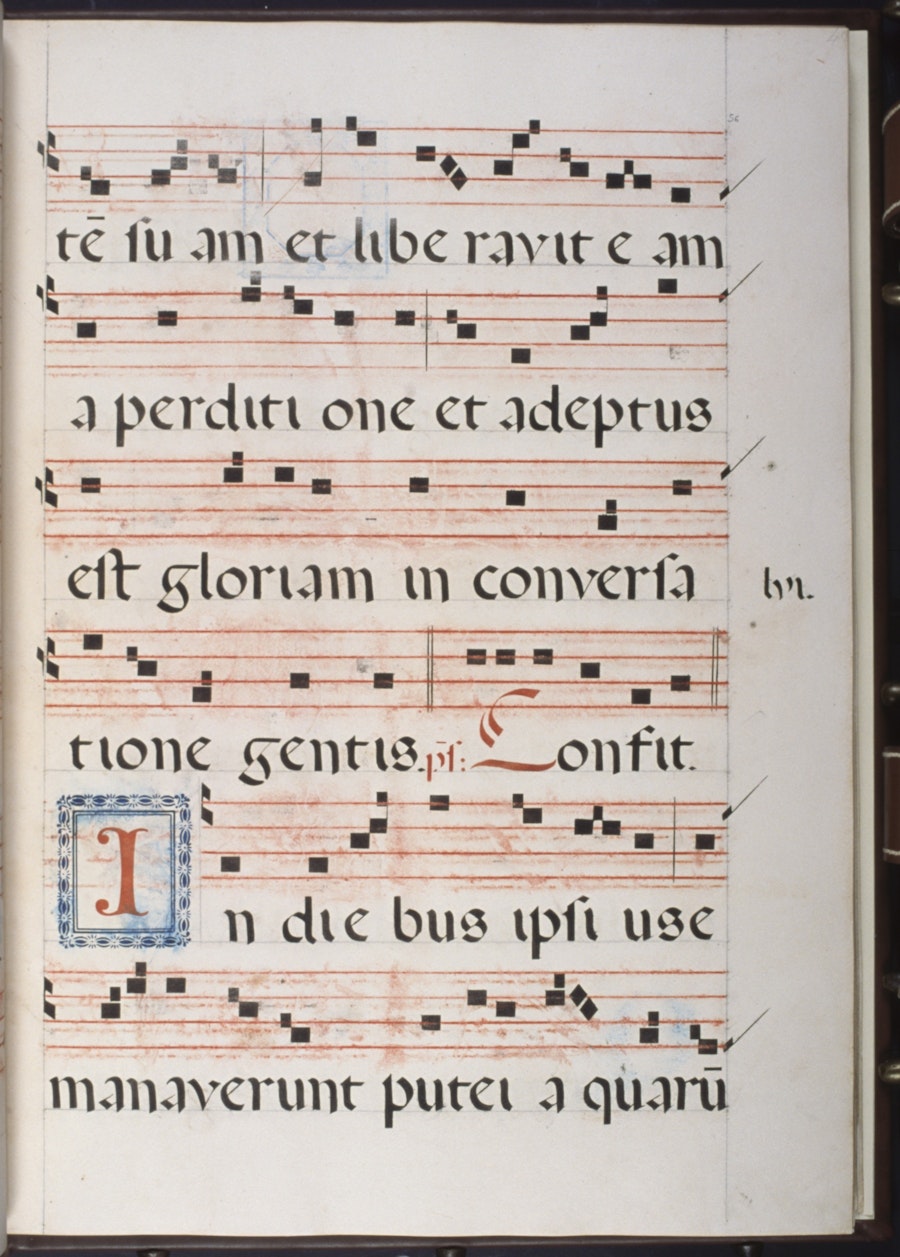 56
tē ſu am et libe ravit e am
a perditi one et adeptus
eſt gloriam in converſa
tione gentis. pſ: Confit.
In die bus ipſi use
manaverunt putei a quarū